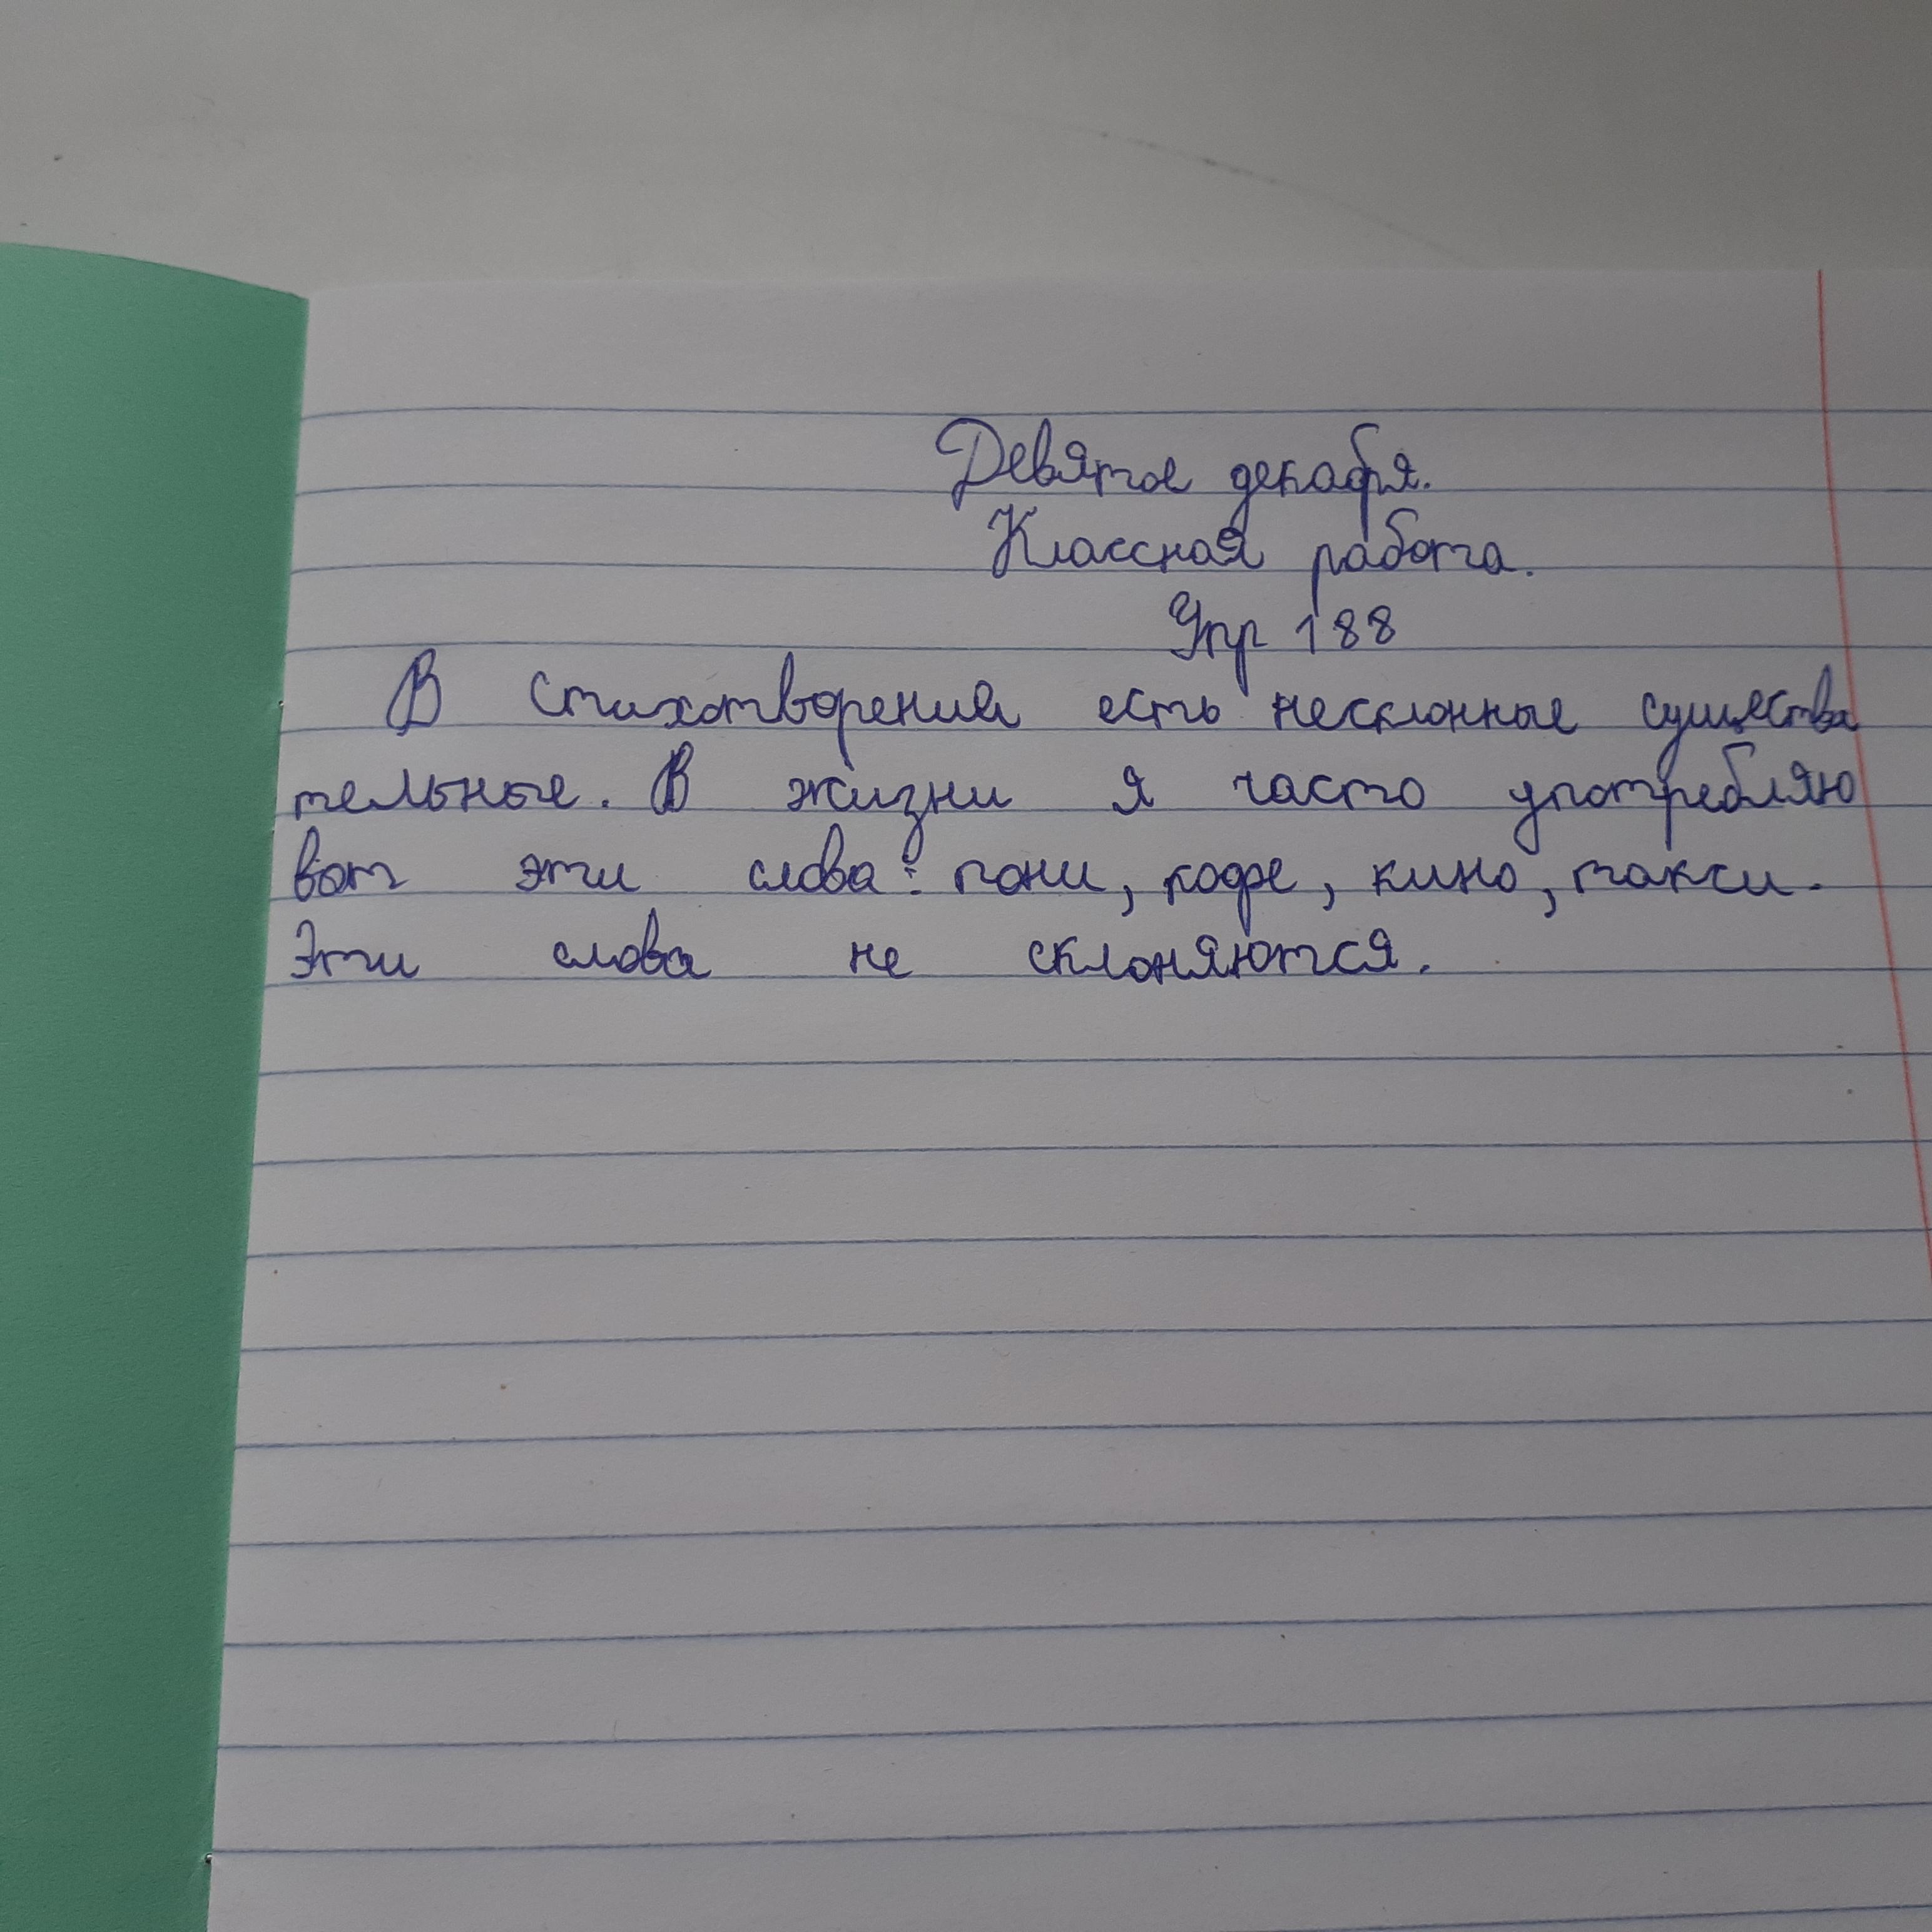 Девятое декабря.
Классная работа.
Упр 188
В стихотворении есть несклонные существи
тельные. В жизни я часто употребляю
вот эти слова: пони, кофе, кино, такси.
Эти слова не склоняются.